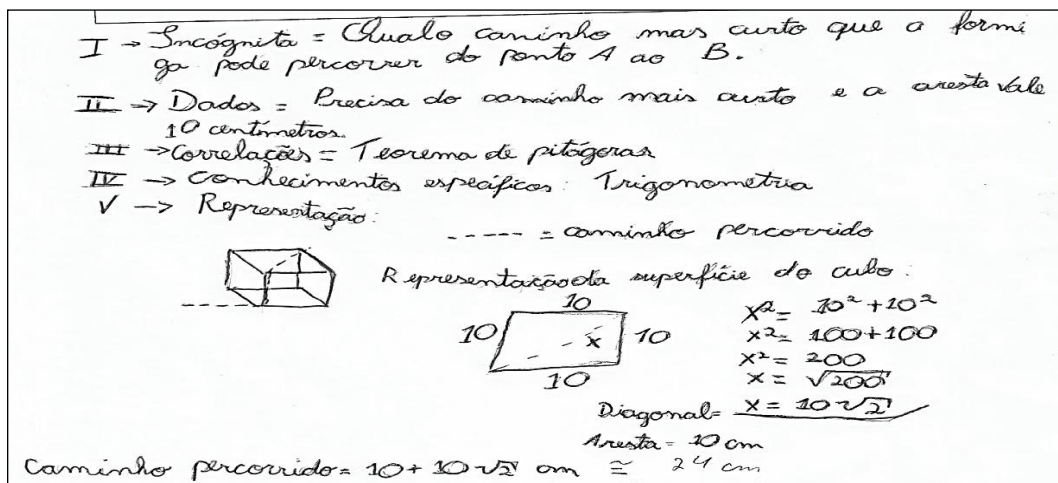 I → Incógnita = Qualo caminho mas curto que a formi
ga pode percorrer do ponto A ao B.
II → Dados = Precisa do caminho mais curto e a aresta vale
10 centímetros.
III → Correlações = Teorema de pitágoras
IV → Conhecimentos específicos: Trigonometria
V → Representação:
----- = caminho percorrido
Representação da superfície do cubo:
10
10 x 10
10
x² = 10² + 10²
x² = 100 + 100
x² = 200
x = √200
Diagonal = x = 10√2
Aresta = 10 cm
Caminho percorrido = 10 + 10√2 cm ≅ 24 cm